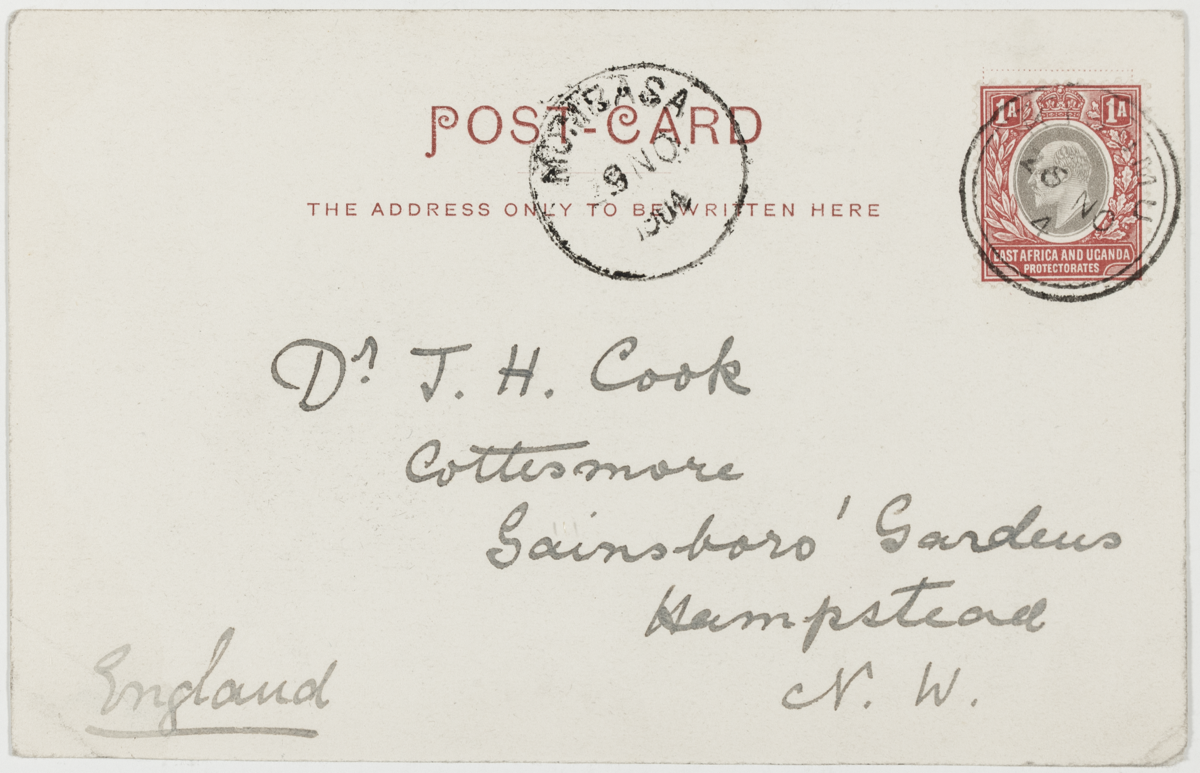 POST-CARD
THE ADDRESS ONLY TO BE WRITTEN HERE
MOMBASA
9 NO
1904
1A 1A
EAST AFRICA AND UGANDA
PROTECTORATES
8 NO
4
Dr. J. H. Cook
Cottesmore
Gainsboro' Gardens
Hampstead
N. W.
England